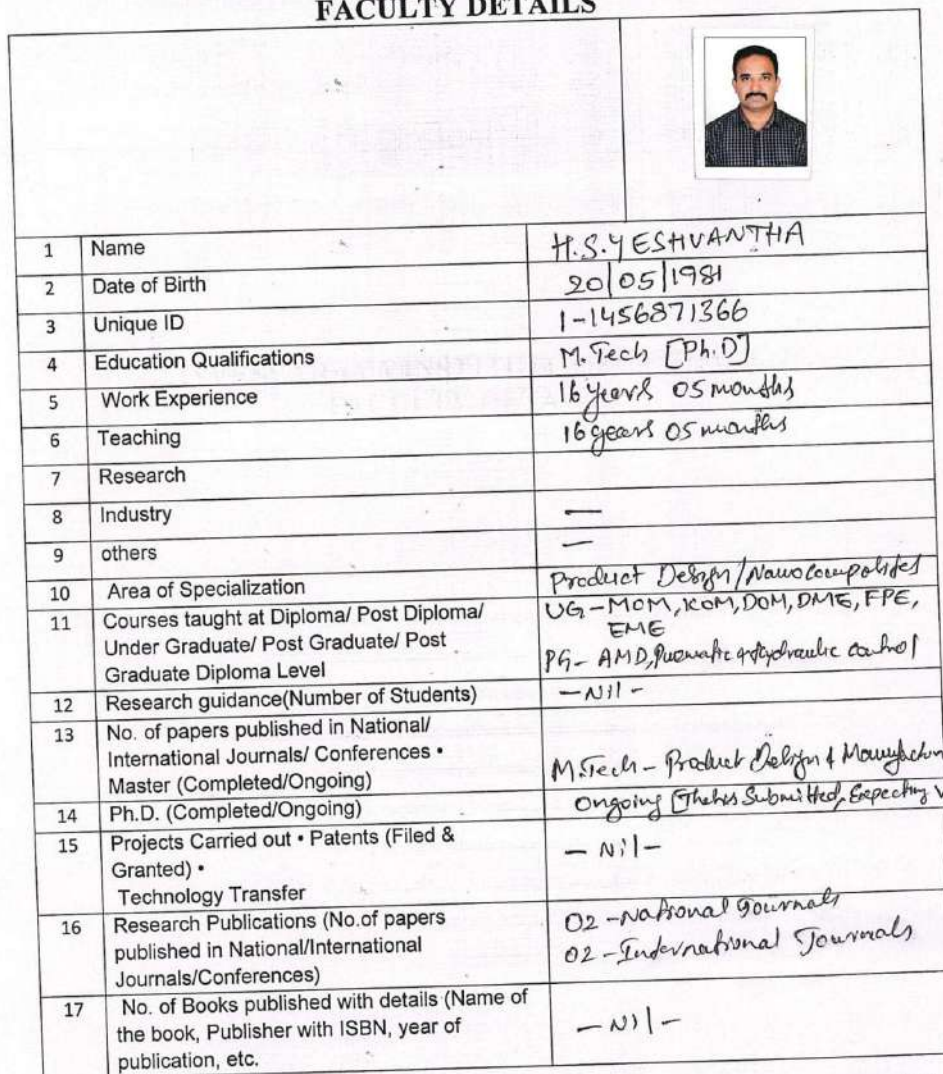 FACULTY DETAILS
1 Name H.S.YESHVANTHA
2 Date of Birth 20/05/1981
3 Unique ID 1-1456871366
4 Education Qualifications M.Tech [Ph.D]
5 Work Experience 16 years 05 months
6 Teaching 16 years 05 months
7 Research
8 Industry —
9 others —
10 Area of Specialization Product Design/Nanocomposites
11 Courses taught at Diploma/ Post Diploma/ UG-MOM, KOM, DOM, DME, FPE,
Under Graduate/ Post Graduate/ Post EME
Graduate Diploma Level PG- AMD, Pneumatic & Hydraulic control
12 Research guidance(Number of Students) -Nil-
13 No. of papers published in National/
International Journals/ Conferences •
Master (Completed/Ongoing) M.Tech - Product Design &
14 Ph.D. (Completed/Ongoing) Ongoing [Thesis Submitted, Expecting
15 Projects Carried out • Patents (Filed & - Nil-
Granted) •
Technology Transfer
16 Research Publications (No.of papers 02-National Journals
published in National/International 02-International Journals
Journals/Conferences)
17 No. of Books published with details (Name of
the book, Publisher with ISBN, year of -Nil-
publication, etc.